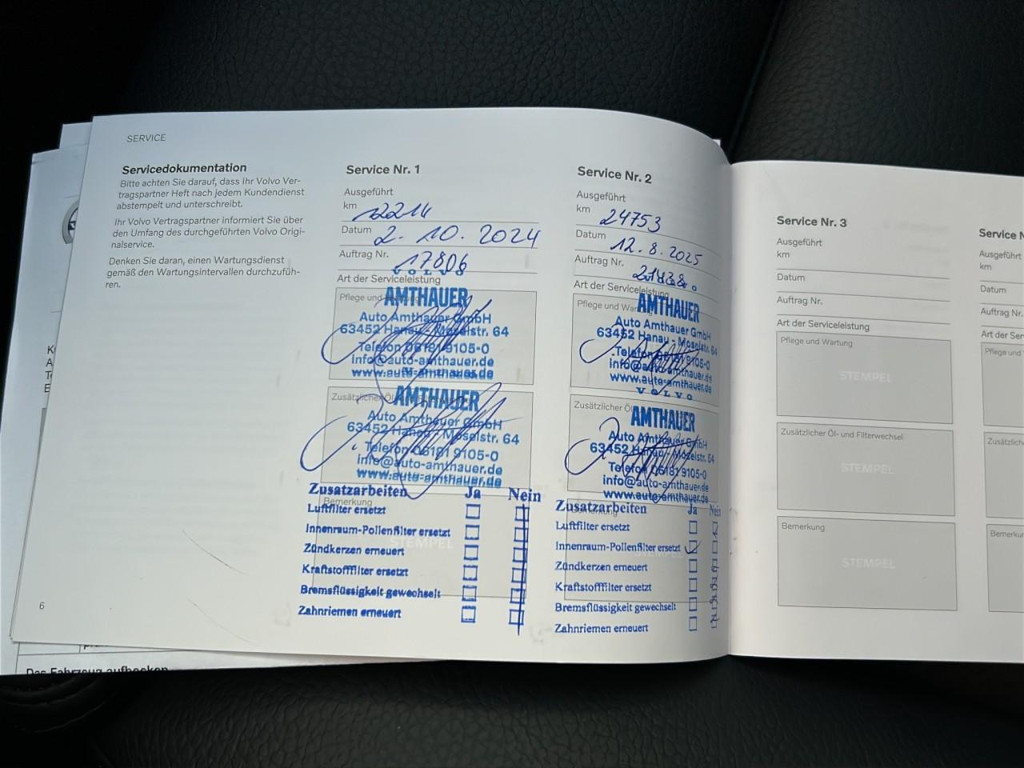 SERVICE
Servicedokumentation
Bitte achten Sie darauf, dass Ihr Volvo Ver-
tragspartner Heft nach jedem Kundendienst
abstempelt und unterschreibt.
Ihr Volvo Vertragspartner informiert Sie über
den Umfang des durchgeführten Volvo Origi-
nalservice.
Denken Sie daran, einen Wartungsdienst
gemäß den Wartungsintervallen durchzufüh-
ren.
6
Service Nr. 1
Ausgeführt
km 12214
Datum 2. 10. 2024
Auftrag Nr. 17806
VOLVO
Art der Serviceleistung
Pflege und
AMTHAUER
Auto Amthauer GmbH
63452 Hanau - Moselstr. 64
Telefon 06181 9105-0
info@auto-amthauer.de
www.auto-amthauer.de
Zusätzlicher Öl-
AMTHAUER
Auto Amthauer GmbH
63452 Hanau - Moselstr. 64
Telefon 06181 9105-0
info@auto-amthauer.de
www.auto-amthauer.de
Zusatzarbeiten Ja Nein
Bemerkung
Luftfilter ersetzt
Innenraum-Pollenfilter ersetzt
STEMPEL
Zündkerzen erneuert
Kraftstofffilter ersetzt
Bremsflüssigkeit gewechselt
Zahnriemen erneuert
Service Nr. 2
Ausgeführt
km 24753
Datum 12. 8. 2025
Auftrag Nr.
Art der Serviceleistung
Pflege und War
AMTHAUER
Auto Amthauer GmbH
63452 Hanau - Moselstr. 64
Telefon 06181 9105-0
info@auto-amthauer.de
www.auto-amthauer.de
VOLVO
Zusätzlicher Öl
AMTHAUER
Auto Amthauer GmbH
63452 Hanau - Moselstr. 64
Telefon 06181 9105-0
info@auto-amthauer.de
www.auto-amthauer.de
Zusatzarbeiten Ja Nein
Luftfilter ersetzt
Innenraum-Pollenfilter ersetzt
Zündkerzen erneuert
Kraftstofffilter ersetzt
Bremsflüssigkeit gewechselt
Zahnriemen erneuert
Service Nr. 3
Ausgeführt
km
Datum
Auftrag Nr.
Art der Serviceleistung
Pflege und Wartung
STEMPEL
Zusätzlicher Öl- und Filterwechsel
STEMPEL
Bemerkung
STEMPEL
Service N
Ausgeführt
km
Datum
Auftrag Nr.
Art der Ser
Pflege und
Zusätzlich
Bemerku
Das Fahrzeug aufbocken